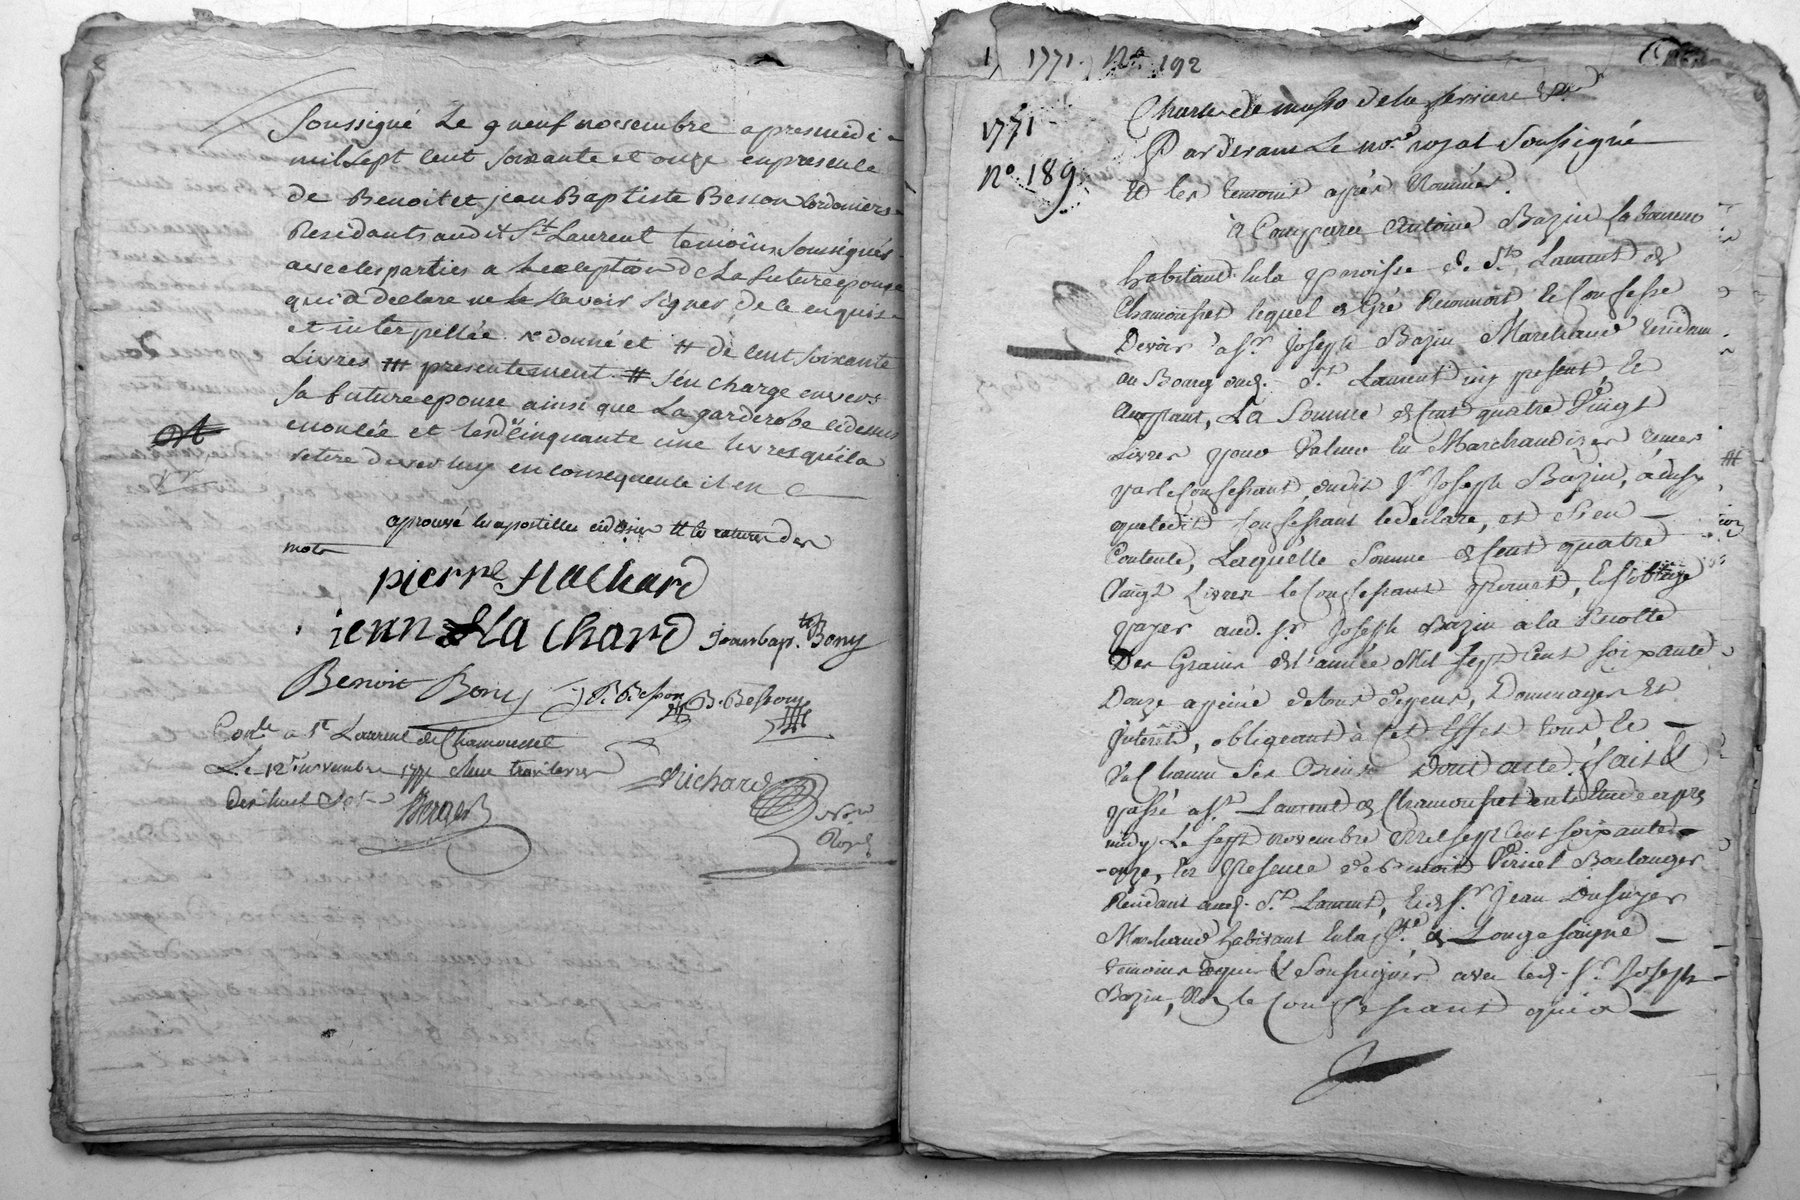 soussigné le 9 neuf novembre apres midi
mil sept cent soixante et onze en presence
de Benoit et jean Baptiste Besson Cordoniers
Residants aud.t St Laurent temoins soussignés
avec les parties a lexception de La future epouse
qui a declaré ne le scavoir signer de ce enquise
et interpellée. x donné et # de cent soixante
Livres # presentement # s'en charge envers
sa future epouse ainsi que La garderobe cidessus
enoncée et lesd. cinquante une livres qu'il a
retiré devers luy en consequence il en
aprouvé les apostilles cidessus # le rature des
mots
pierre flachard
jean flachard Jean bap.te Bony
Benoit Bony J. B. Besson B. Besson
Contlé a St Laurent de Chamousset
Le 12 novembre 1771 Reçu trois livres
dix huit sols
Berger
Richard
Nore
Royal
1771. No. 192
1771
No. 189
Charles de musso de la ferriere
Pardevant Le nore royal soussigné
Et les temoins après Nommés.
à Comparu Antoine Bazin
habitant en la paroisse de St. Laurent de
Chamousset lequel de Gré Reconnoit et Confesse
Devoir à sr. Joseph Bazin Marchand Residant
au Bourg dud. St. Laurent icy present et
acceptant, La Somme de Cent quatre Vingt
Livres pour Valeur en Marchandizes
par le Confessant dudit sr Joseph Bazin, à
que ledit Confessant le declare, et S'en
Contente, Laquelle Somme de Cent quatre
Vingt Livres le Confessant promet, et s'oblige
payer aud. sr. Joseph Bazin à la Recolte
Des Grains de l'année Mil sept Cent soixante
Douze a peine de tous depens, Dommages Et
interêts, obligeant à cet Effet tous et
Un chacun Ses Biens Dont acte. fait &
passé a St. Laurent de Chamousset en Etude après
midy Le sept novembre Mil sept cent soixante
onze, En presence de Benoit Viricel Boulanger
Residant aud. St. Laurent, et de sr. Jean
Marchand habitant en la psse. de Longesaigne
temoins requis & Soussignés avec led. sr. Joseph
Bazin, Non le Confessant qui a